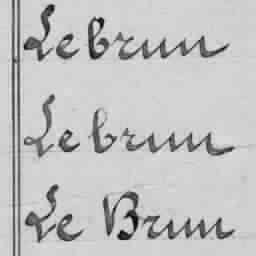 Lebrun
Lebrun
Le Brun